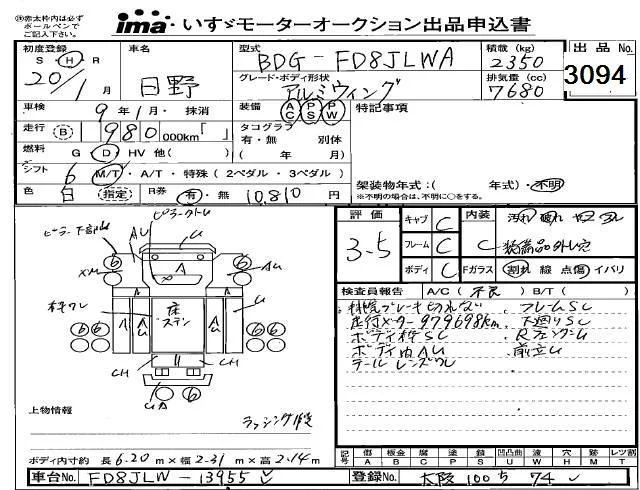 ※赤太枠内は必ず
ボールペンで
ご記入下さい。
ima いすゞモーターオークション出品申込書
初度登録 S H R 20/1月
車名 日野
型式 BDG-FD8JLWA
積載(kg) 2350
出品No. 3094
グレード・ボディ形状 アルミウィング
排気量(cc) 7680
車検 9年1月・抹消
装備 AC PS PW
特記事項
走行 B 980000km「 」
タコグラフ 有・無 別体
( 年 月)
燃料 G・D・HV 他( )
シフト 6 M/T・A/T・特殊(2ペダル・3ペダル)
架装物年式:( 年式)・不明
※不明の場合は、不明に○をする。
色 白 (指定) R券 有・無 10,810円
評価 3.5
キャブ C
フレーム C
ボディ C
内装 C
汚れ
装備品外し穴
Fガラス 割れ 線 点傷 イバリ
ピラー下部
ピラー
AU
U
A
XM
AU
6 6
床
ステン
A AU A U
6 6 6 6
CH CH
UA 6
検査員報告 A/C(不良) B/T( )
フレームSC
走行メーター979698km 下廻りSC
ボディ枠SC RフェンダーU
ボディ内AU 前立U
テールレンズワレ
上物情報
ラッシング
ボディ内寸約 長6.20m×幅2.31m×高2.14m
記号 傷A 板金B 腐C 塗P 錆S 凹凸曲U 波W 穴H 跡M レツ割T
車台No. FD8JLW-13955
登録No. 大阪 100 ち 74